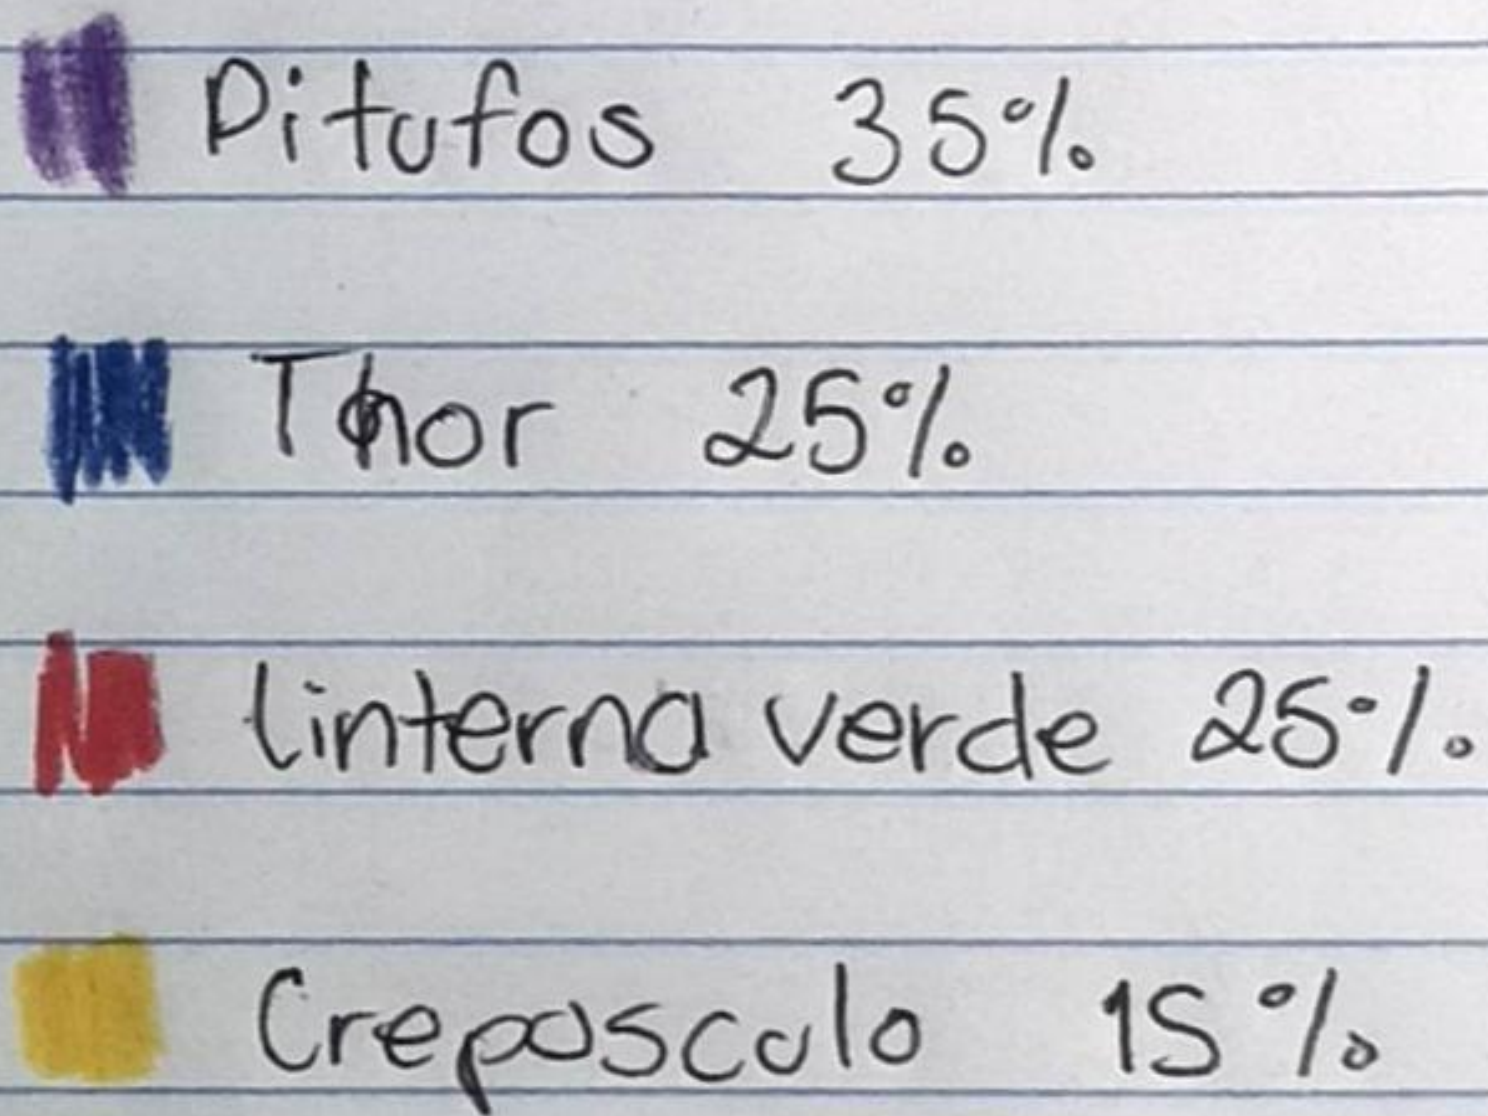 Pitufos 35%
Thor 25%
linterna verde 25%
Crepusculo 15%